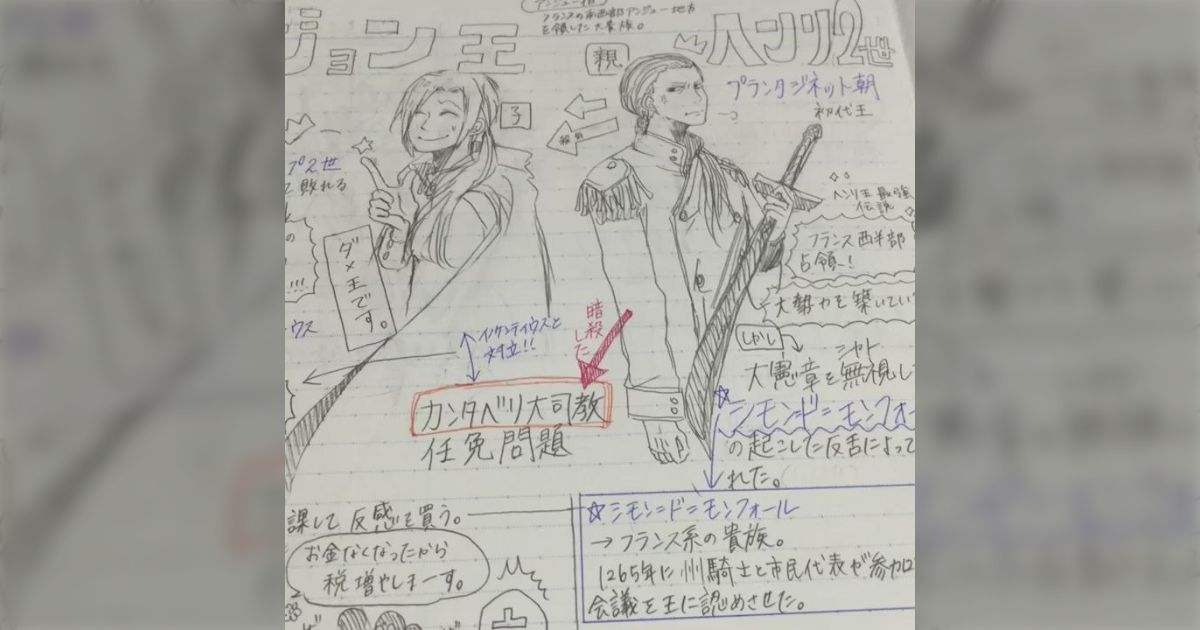 アンジュー伯
フランスの南西部アンジュー地方
を領した大貴族。
ジョン王
親
ヘンリ2世
プランタジネット朝
初代王
子
プ2世
敗れる
ヘンリ王最強
伝説
フランス西半部
占領!
大勢力を築いてい
しかし
大憲章を無視し
シモン=ド=モンフォー
の起こした反舌によって
れた。
ダメ王です。
暗殺した
ウス
インケンティウスと
対立!!
カンタベリ大司教
任免問題
課して反感を買う。
お金なくなったから
税増やしまーす。
☆シモン=ド=モンフォール
→フランス系の貴族。
1265年に州騎士と市民代表が参加
会議を王に認めさせた。